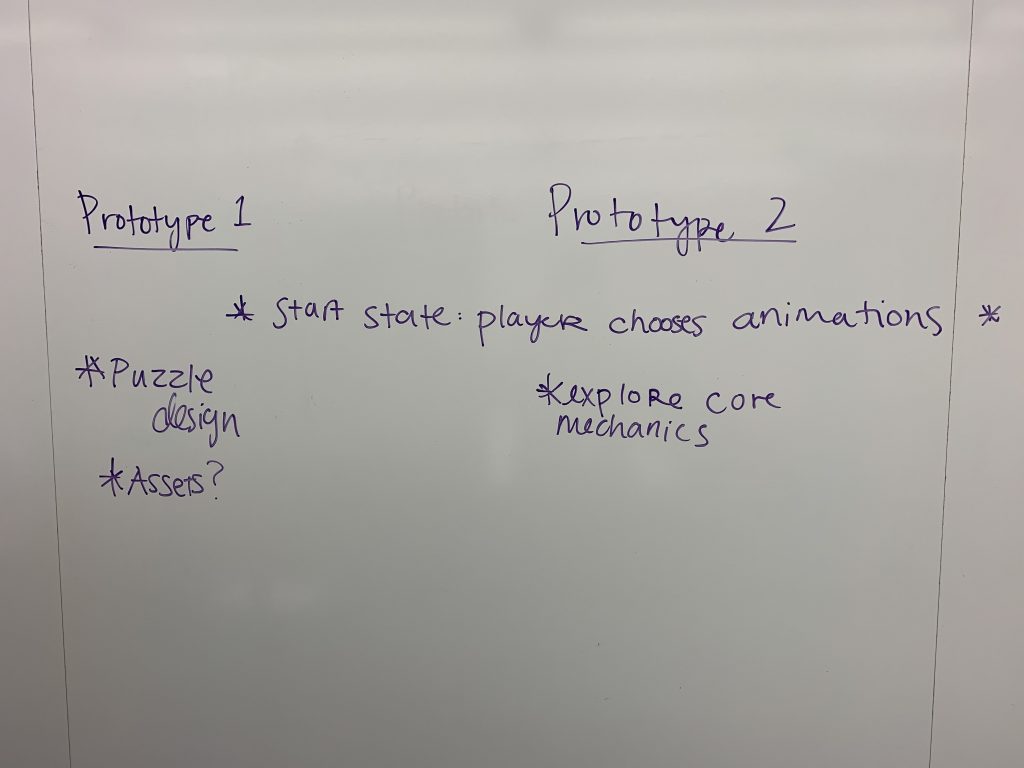 Prototype 1
Prototype 2
* Start state: player chooses animations *
* Puzzle
design
* Assets?
* explore core
mechanics